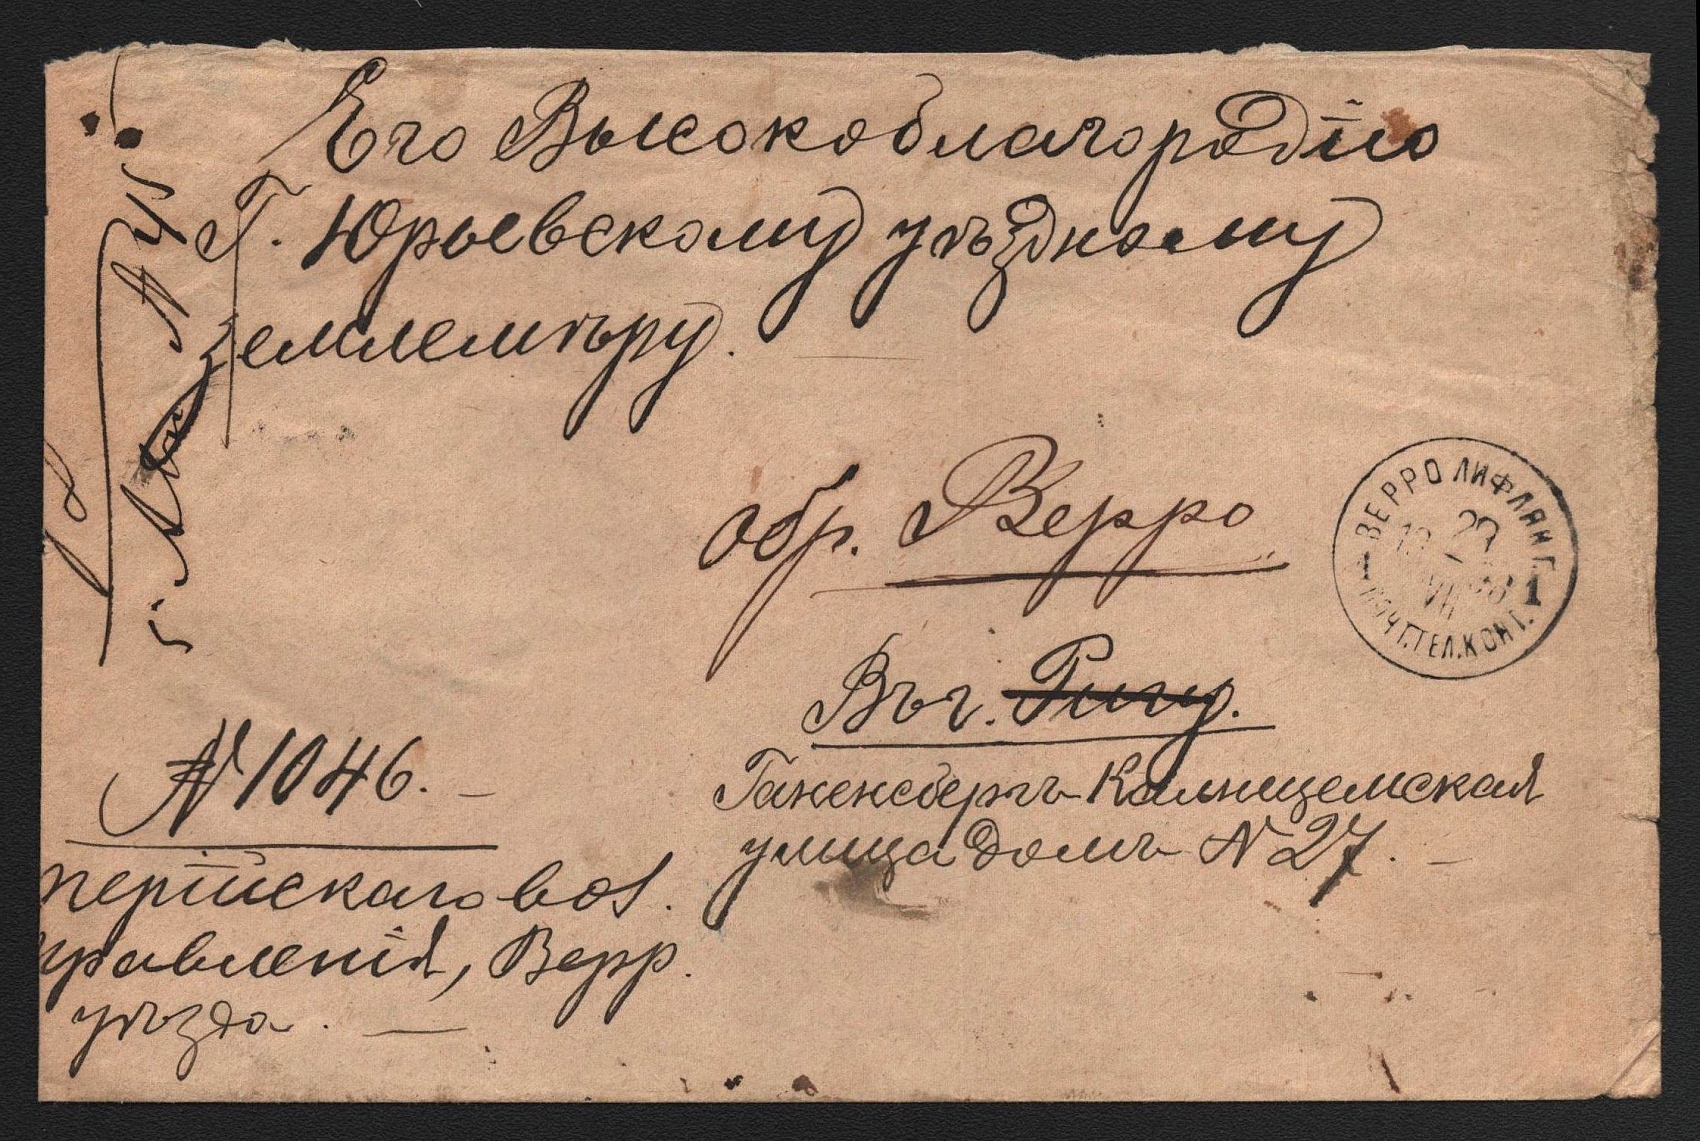 Его Высокоблагородію
Г. Юрьевскому уѣздному
землемѣру.
обр. Верро
Въ г. Ригу.
Гагенсбергъ Кальнецемская
улица домъ № 27.
№ 1046.
управленія, Верр.
уѣзда.
ВЕРРО ЛИФЛЯН. Г.
23
VII
1 1
ПОЧТ. ТЕЛ. КОНТ.